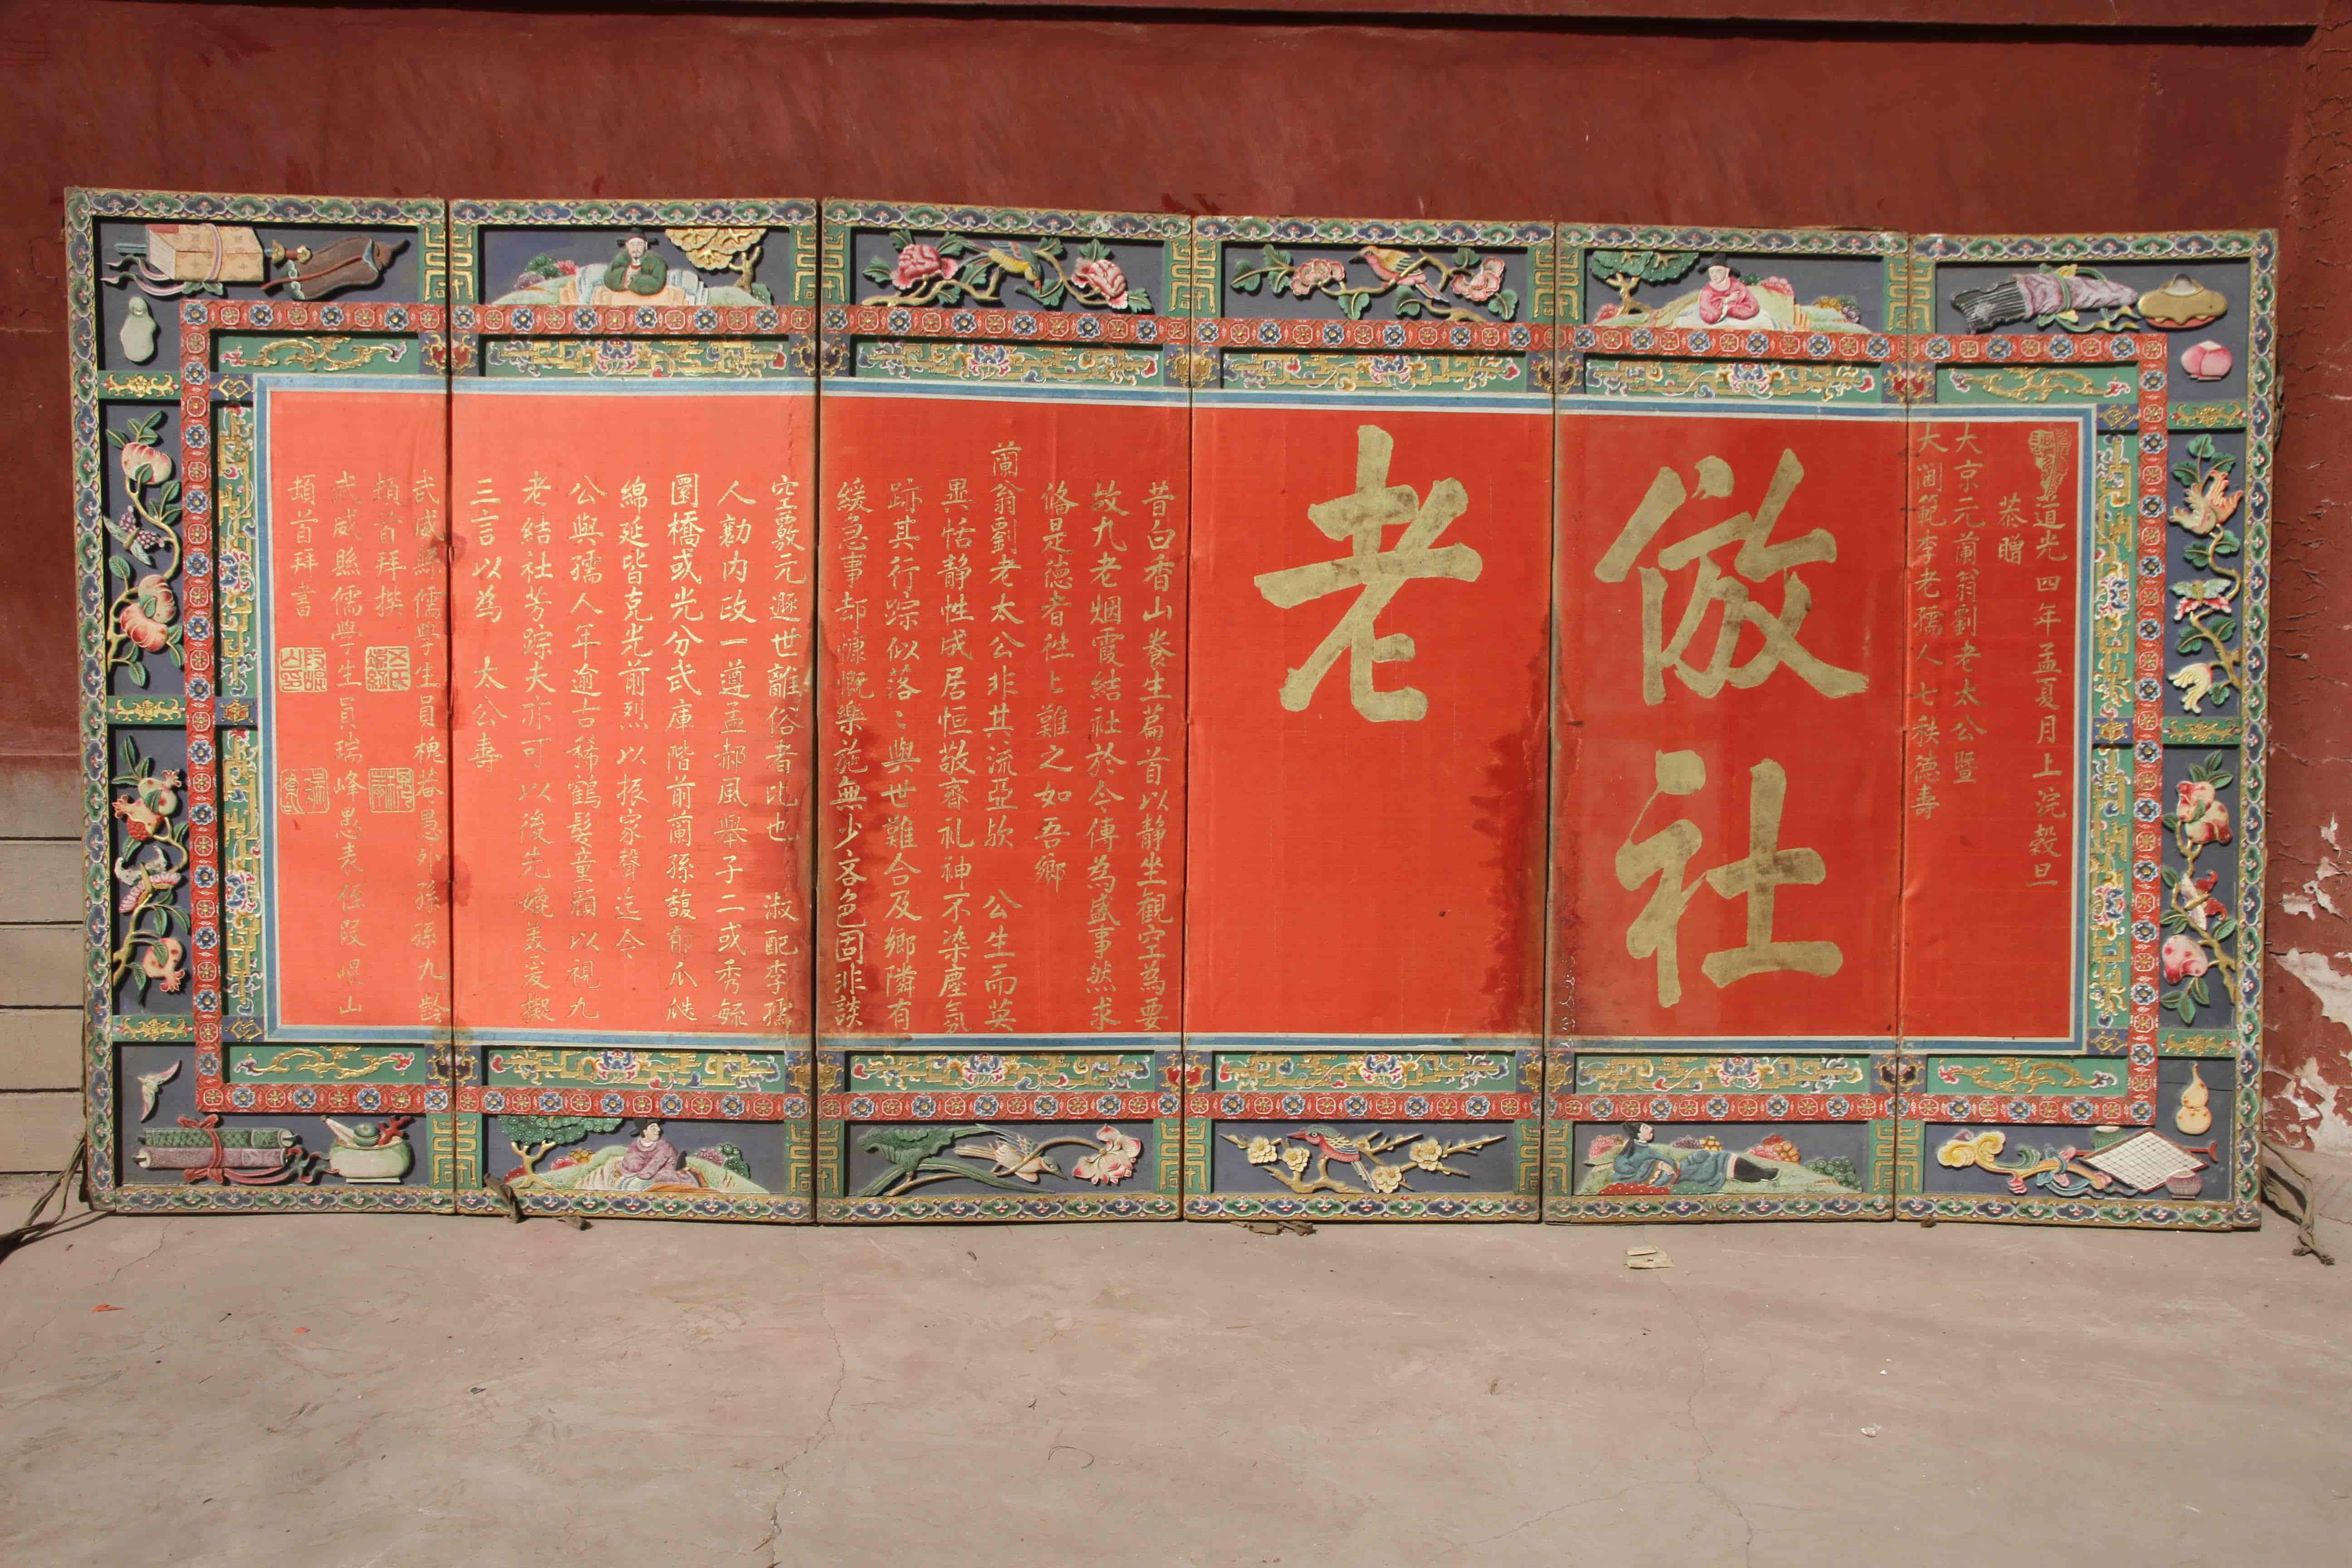 道光四年孟夏月上浣穀旦
恭贈
大京元蘭翁劉老太公暨
大閫範李老孺人七秩德壽
倣社老
昔白香山養生篇首以靜坐觀空為要
故九老烟霞結社於今傳為盛事然求
脩是德者徃〻難之如吾鄉
蘭翁劉老太公非其流亞欤 公生而英
異恬静性成居恒敬齋礼神不染塵氛
跡其行踪似落〻與世難合及鄉隣有
緩急事却慷慨樂施無少吝色固非談
空覈元遯世離俗者比也 淑配李孺
人勷内政一遵孟郝風舉子二或秀毓
圜橋或光分武庫階前蘭孫馥郁瓜瓞
綿延皆克光前烈以振家聲迄今
公與孺人年逾古稀鶴髮童顔以視九
老結社芳踪夫亦可以後先媲美爰擬
三言以為 太公壽
武威縣儒學生員槐菴愚外孫孫九齡
頓首拜撰
武威縣儒學生員瑞峰愚表侄段崐山
頓首拜書